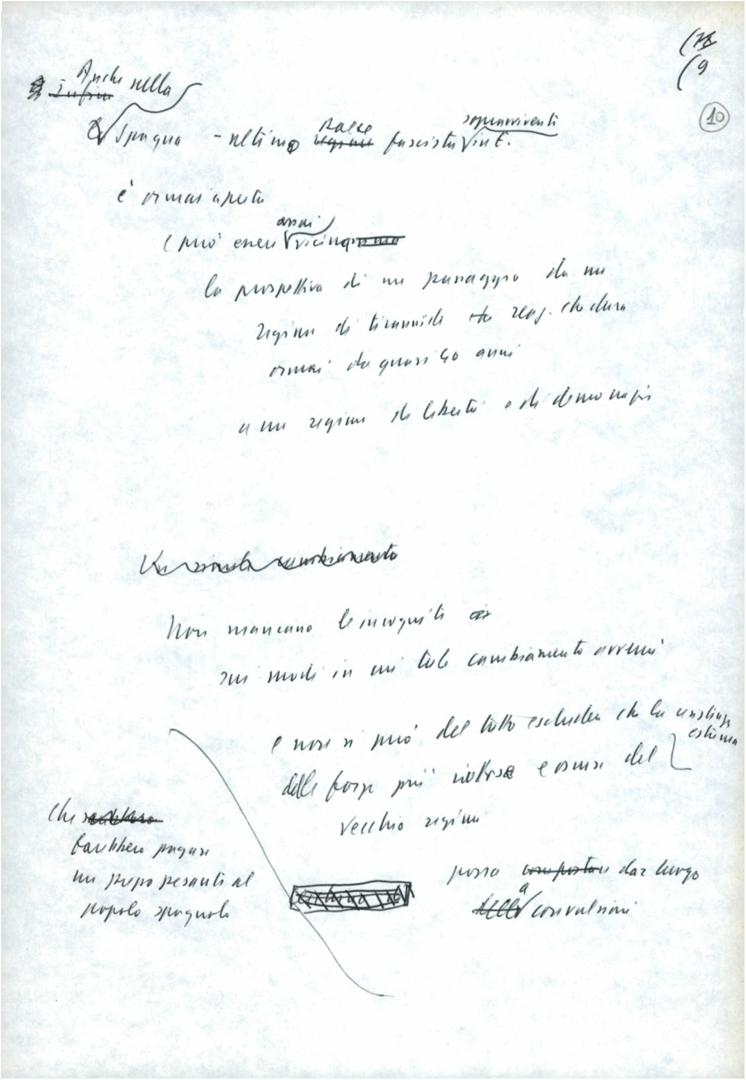 (9
10
Anche nella
Spagna - ultimo paese fascista sopravvivente in E.
è ormai aperta
e può essere assai vicina
la prospettiva di un passaggio da un
regime di tirannide reaz. che dura
ormai da quasi 40 anni
a un regime di libertà e di democrazia
Un simile cambiamento
Non mancano le incognite
sui modi in cui tale cambiamento avverrà
e non si può del tutto escludere che la resistenza
estrema
delle forze più retrive e oscure del
vecchio regime
possa dar luogo
a convulsioni
che
farebbero pagare
un prezzo pesante al
popolo spagnolo